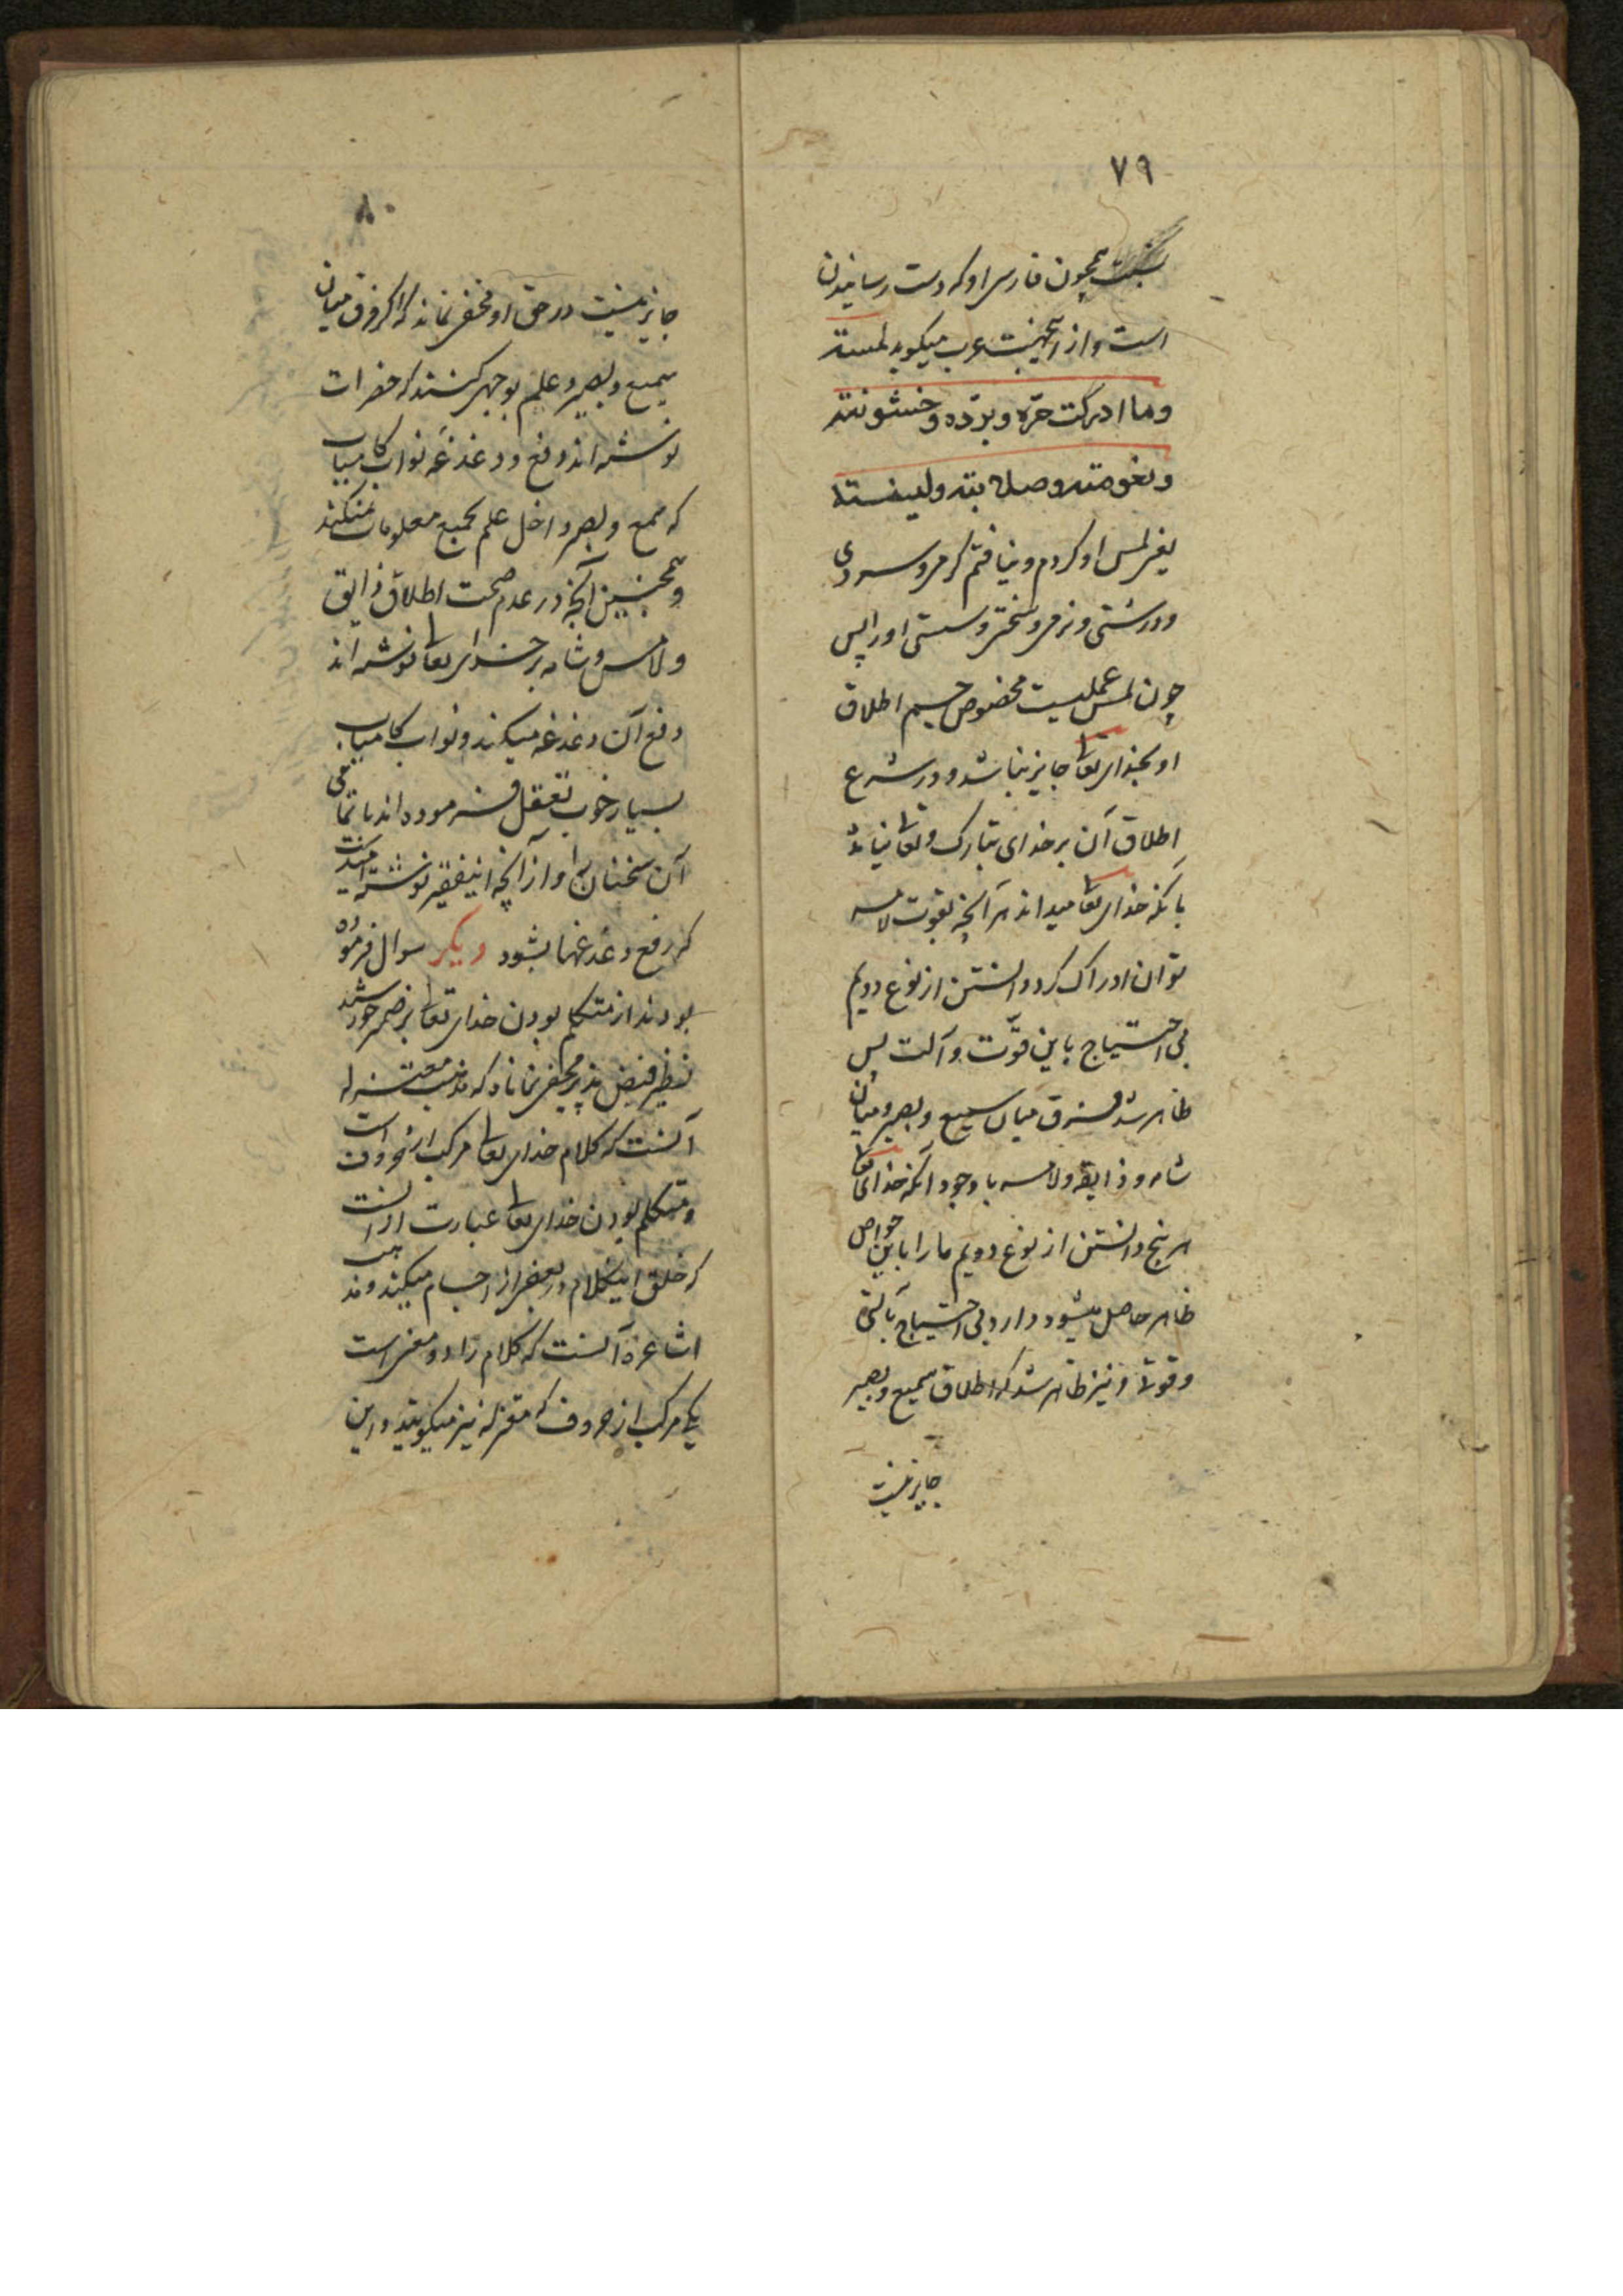 ۷۹
نیست همچون فارسی او که دست رسانیدن
است و از اینجهت عرب میکوید لمسته
وما ادرکت حرّه وبرّده وخشونته
ونعومته وصلابته ولینته
یعنی لمس او کردم و نیافتم کرمی و سردی
و درشتی و نرمی و سختی و سستی او را پس
چون لمس عملیست مخصوص جسم اطلاق
او بخدای تعا جایز نباشد و در شرع
اطلاق آن بر خدای تبارک و تعا نیامد
با آنکه خدای تعا میداند هر آنچه بقوت لامسه
توان ادراک کرد دانستن از نوع دویم
بی احتیاج باین قوّت و آلت پس
ظاهر شد فرق میان سمیع و بصیر و میان
شامه و ذایقه و لامسه با وجود آنکه خدای تعا
هر پنج دانستن از نوع دویم ما را باین حواص
ظاهر حاصل میشود دارد بی احتیاج بآلتی
و قوتی و نیز ظاهر شد که اطلاق سمیع و بصیر
جایز نیست
۸۰
جایز نیست در حق او مخفی نماند که اکر فرق میان
سمیع و بصیر و علم بوجهی کنند که حضرات
نوشته اند دفع دغدغه نواب کامیاب
که سمع و بصر داخل علم بجمیع معلومات نمیکند
و همچنین آنچه در عدم صحت اطلاق ذایق
و لامس و شامه بر خدای تعا نوشته اند
دفع آن دغدغه میکند و نواب کامیاب
بسیار خوب تعقل فرموده اند با تمامی
آن سخنان را و از آنچه اینفقیر نوشته امیدست
که رفع دغدغها بشود دیکر سوال فرموده
بودند از متکلم بودن خدای تعا بر ضمیر خورشید
نظیر فیض پذیر مخفی نماناد که مذهب معتزله
آنست که کلام خدای تعا مرکب از حروف است
و متکلم بودن خدای تعا عبارت از آنست
که خلق اینکلام در بعضی از اجسام میکند و مذهب
اشاعره آنست که کلام را دو معنی است
یکی مرکب از حروف که معتزله نیز میکویند و این